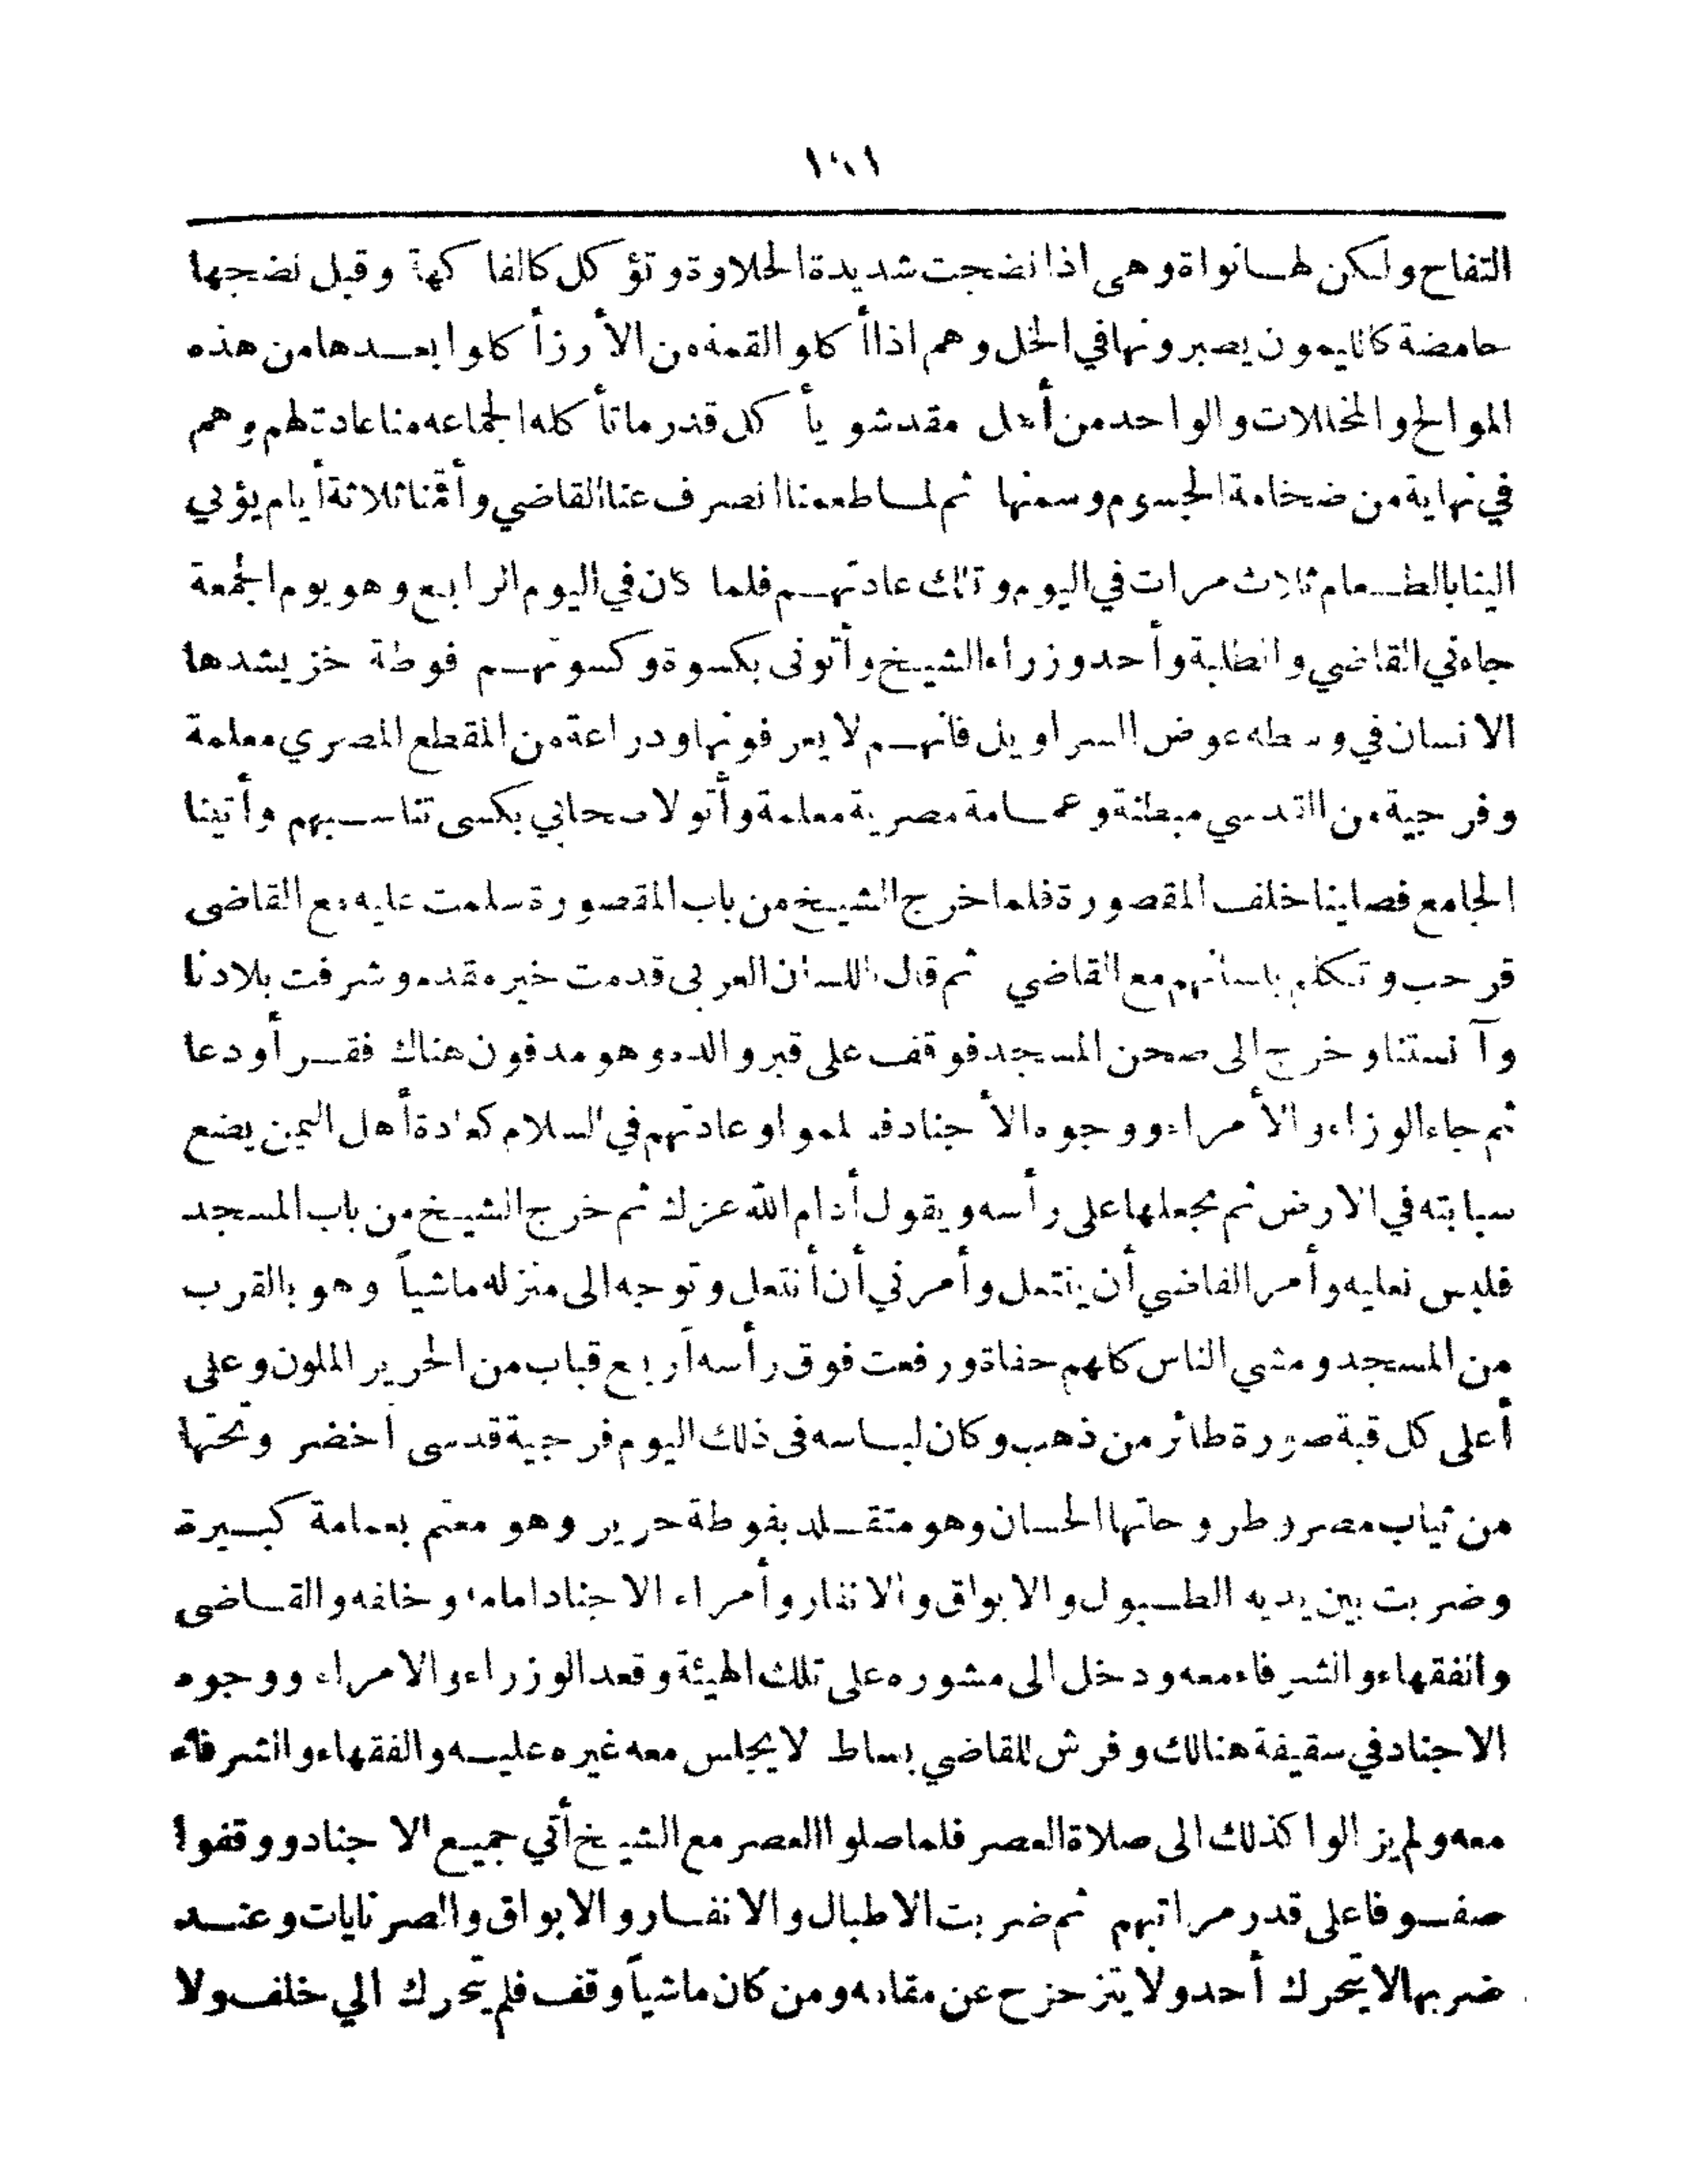 التفاح ولكن لها نواة وهى اذا نضجت شديدة الحلاوة وتؤكل كالفاكهة وقبل نضجها
حامضة كالليمون يصبرونها في الخل وهم اذا أكلوا لقمة من الأرز أكلوا بعدها من هذه
الموالح والمخللات والواحد من أهل مقدشو يأكل قدر ما تأكله الجماعه منا عادة لهم وهم
في نهاية من ضخامة الجسوم وسمنها ثم لما طعمنا انصرف عنا القاضي وأقمنا ثلاثة أيام يؤتي
الينا بالطعام ثلاث مرات في اليوم وتلك عادتهم فلما كان في اليوم الرابع وهو يوم الجمعة
جاءني القاضي والطلبة وأحد وزراء الشيخ وأتونى بكسوة وكسوتهم فوطة خز يشدها
الانسان في وسطه عوض السراويل فانهم لا يعرفونها ودراعة من المقطع المصري معلمة
وفرجية من القدسي مبطنة وعمامة مصرية معلمة وأتو لاصحابي بكسى تناسبهم وأتينا
الجامع فصلينا خلف المقصورة فلما خرج الشيخ من باب المقصورة سلمت عليه مع القاضى
فرحب وتكلم بلسانهم مع القاضي ثم قال باللسان العربى قدمت خير مقدم وشرفت بلادنا
وآنستنا وخرج الى صحن المسجد فوقف على قبر والده وهو مدفون هناك فقرأ ودعا
ثم جاء الوزاء والأمراء ووجوه الأجناد فسلموا وعادتهم في السلام كعادة أهل اليمن يضع
سبابته في الارض ثم يجعلها على رأسه ويقول أدام الله عزك ثم خرج الشيخ من باب المسجد
فلبس نعليه وأمر القاضي أن ينتعل وأمرني أن أنتعل وتوجه الى منزله ماشياً وهو بالقرب
من المسجد ومشي الناس كلهم حفاة ورفعت فوق رأسه أربع قباب من الحرير الملون وعلى
أعلى كل قبة صورة طائر من ذهب وكان لباسه فى ذلك اليوم فرجية قدسى أخضر وتحتها
من ثياب مصر وطروحاتها الحسان وهو متقلد بفوطة حرير وهو معتم بعمامة كبيرة
وضربت بين يديه الطبول والابواق والانفار وأمراء الاجناد امامه وخلفه والقاضى
والفقهاء والشرفاء معه ودخل الى مشوره على تلك الهيئة وقعد الوزراء والامراء ووجوه
الاجناد في سقيفة هنالك وفرش للقاضي بساط لا يجلس معه غيره عليه والفقهاء والشرفاء
معه ولم يزالوا كذلك الى صلاة العصر فلما صلوا العصر مع الشيخ أتي جميع الاجناد ووقفوا
صفوفا على قدر مراتبهم ثم ضربت الاطبال والانفار والابواق والصرنايات وعند
ضربها لا يتحرك أحد ولا يتزحزح عن مقامه ومن كان ماشياً وقف فلم يتحرك الي خلف ولا